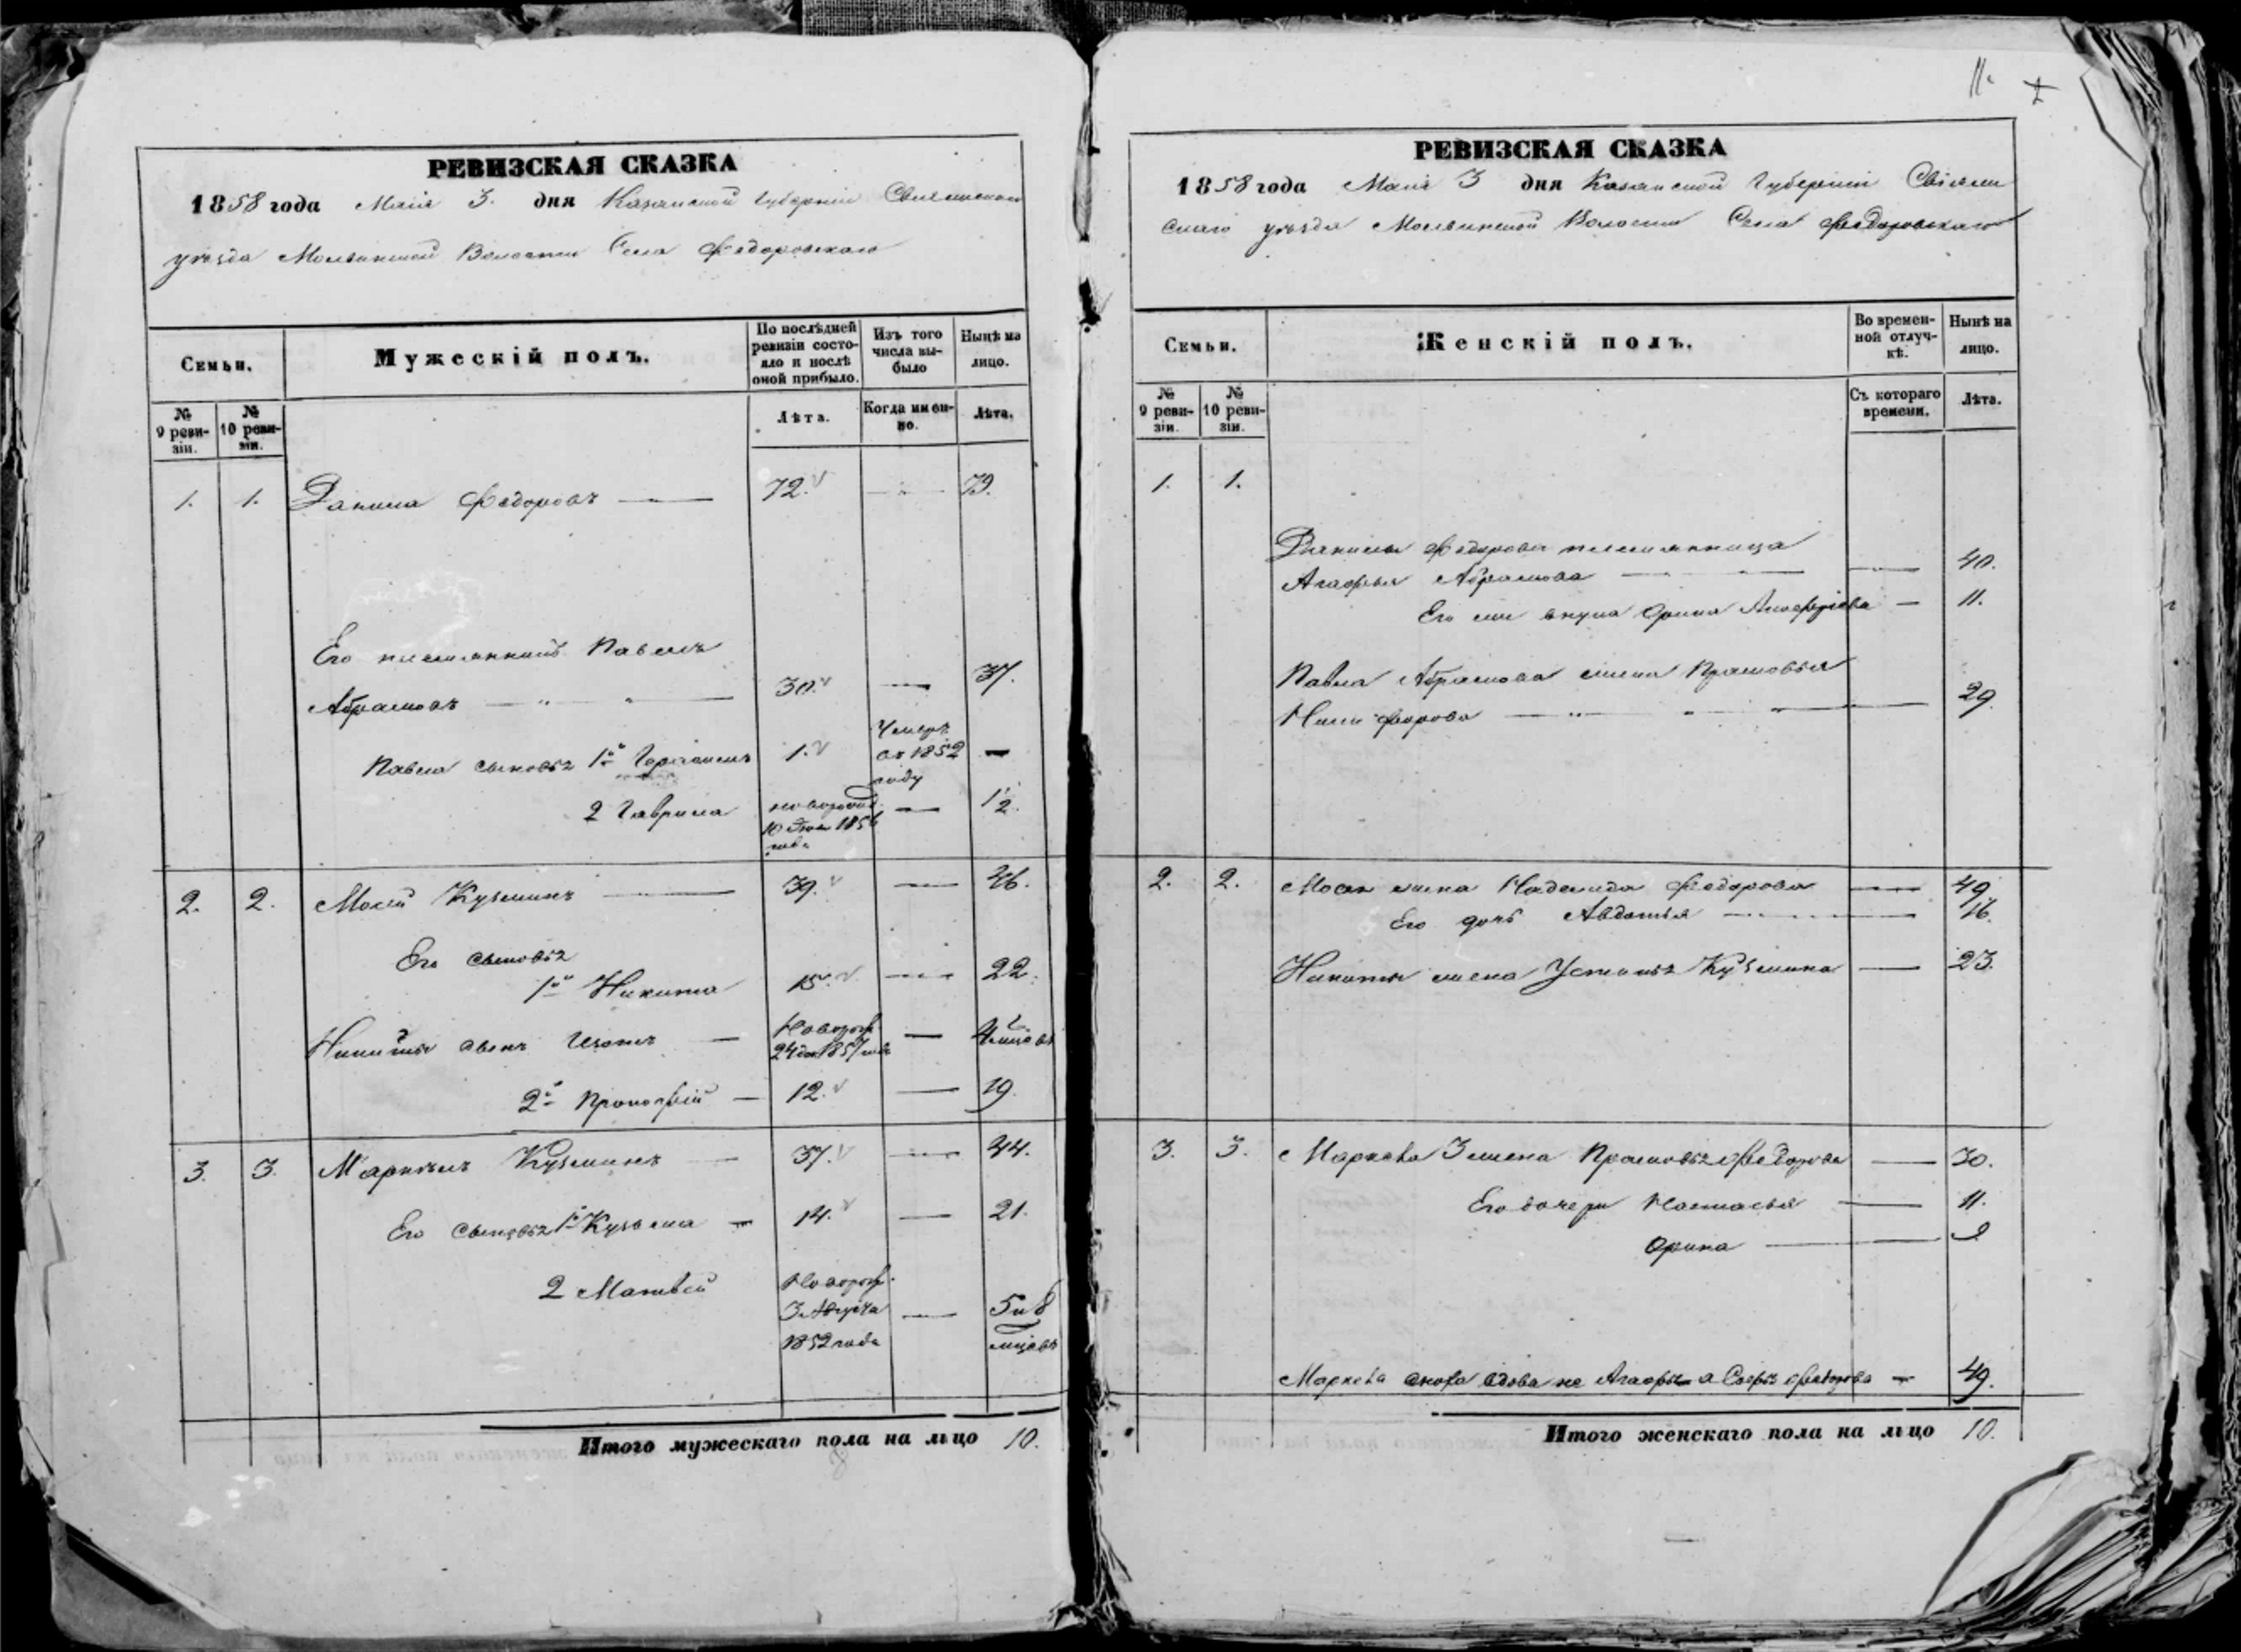 РЕВИЗСКАЯ СКАЗКА
1858 года Маія 3. дня Казанской Губерніи Свіяжскаго
уѣзда Молвинской Волости Села Федоровскаго
Семьи.
Мужескій полъ.
По послѣдней ревизіи состояло и послѣ оной прибыло.
Изъ того числа выбыло
Нынѣ на лицо.
№ 9 ревизіи.
№ 10 ревизіи.
Лѣта.
Когда именно.
Лѣта.
1. 1. Данила Федоровъ 72. 79.
Его племянникъ Павелъ
Абрамовъ 30. 37.
Павла сыновья 1й 1. Умеръ въ 1852 году
2 Гаврила новорожд. 10 1856 года 1½.
2. 2. Мосей Кузминъ 39. 46.
Его сыновья
1й Никита 15. 22.
Никиты сынъ Изотъ Новорож. 24 1857 года 4 мцовъ
2й Прокофей 12. 19.
3. 3. Маркелъ Кузминъ 37. 44.
Его сыновья 1й Кузьма 14. 21.
2 Матвей Новорож. 3 Августа 1852 года 5 и 8 мцовъ
Итого мужескаго пола на лицо 10.
8
11.
РЕВИЗСКАЯ СКАЗКА
1858 года Маія 3 дня Казанской Губерніи Свіяж
скаго уѣзда Молвинской Волости Села Федоровскаго
Семьи.
Женскій полъ.
Во временной отлучкѣ.
Нынѣ на лицо.
№ 9 ревизіи.
№ 10 ревизіи.
Съ котораго времени.
Лѣта.
1. 1.
Данилы Федорова племянница
Агафья Абрамова 40.
Его же внука Орина 11.
Павла Абрамова жена Прасковья
Никифорова 29.
2. 2. Мосея жена Надежда Федорова 49.
Его дочь Авдотья 16.
Никиты жена Устинья Кузмина 23.
3. 3. Маркела 3 жена Прасковья Федорова 30.
Его дочери Настасья 11.
Орина 9
Маркела сноха вдова не Агафья а Софья Федорова 49.
Итого женскаго пола на лицо 10.